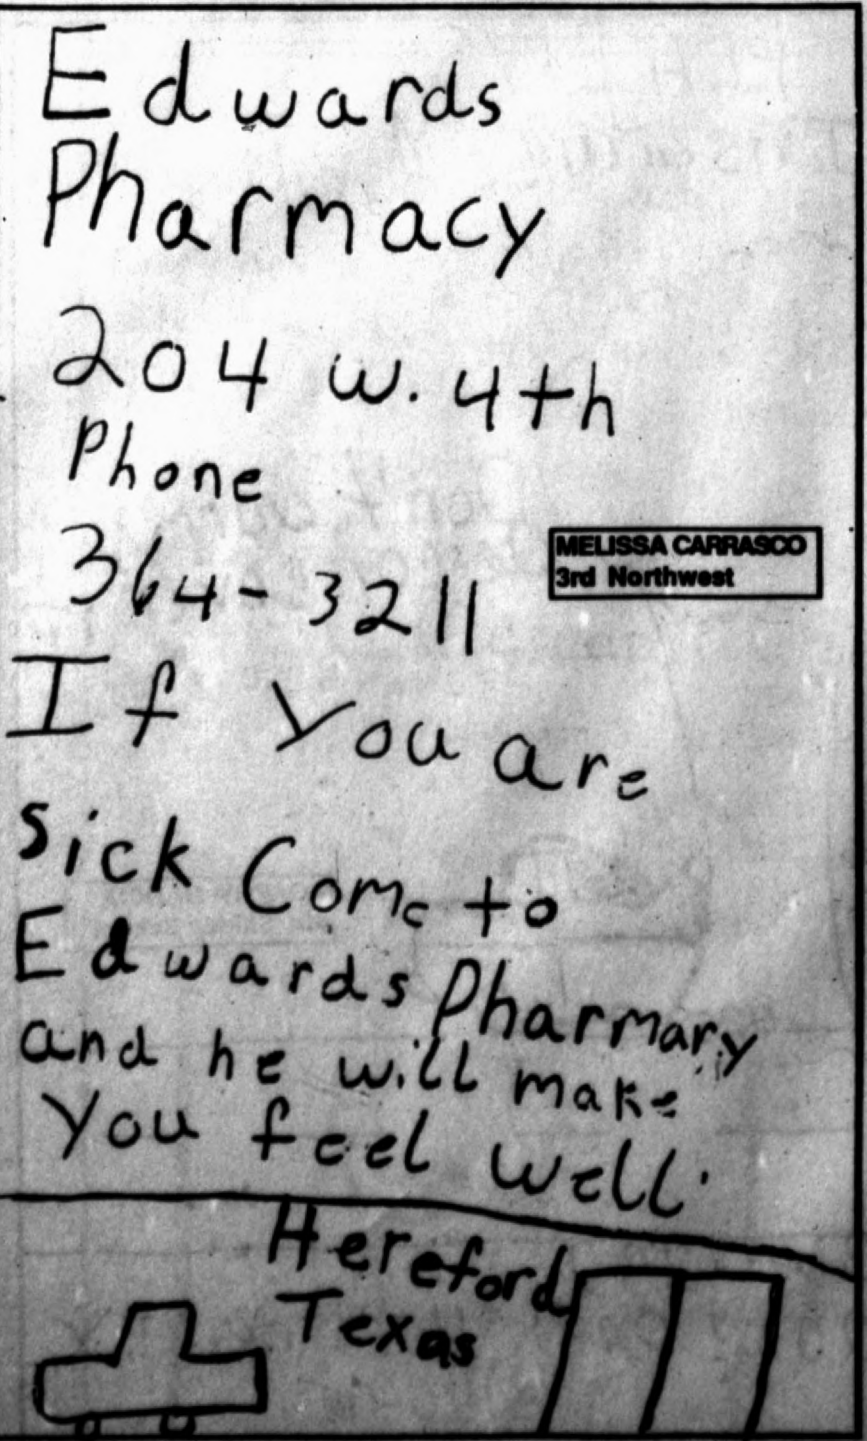 Edwards
Pharmacy
204 w. 4th
Phone
364-3211
MELISSA CARRASCO
3rd Northwest
If you are
Sick Come to
Edwards Pharmary
and he will make
you feel well.
Hereford
Texas